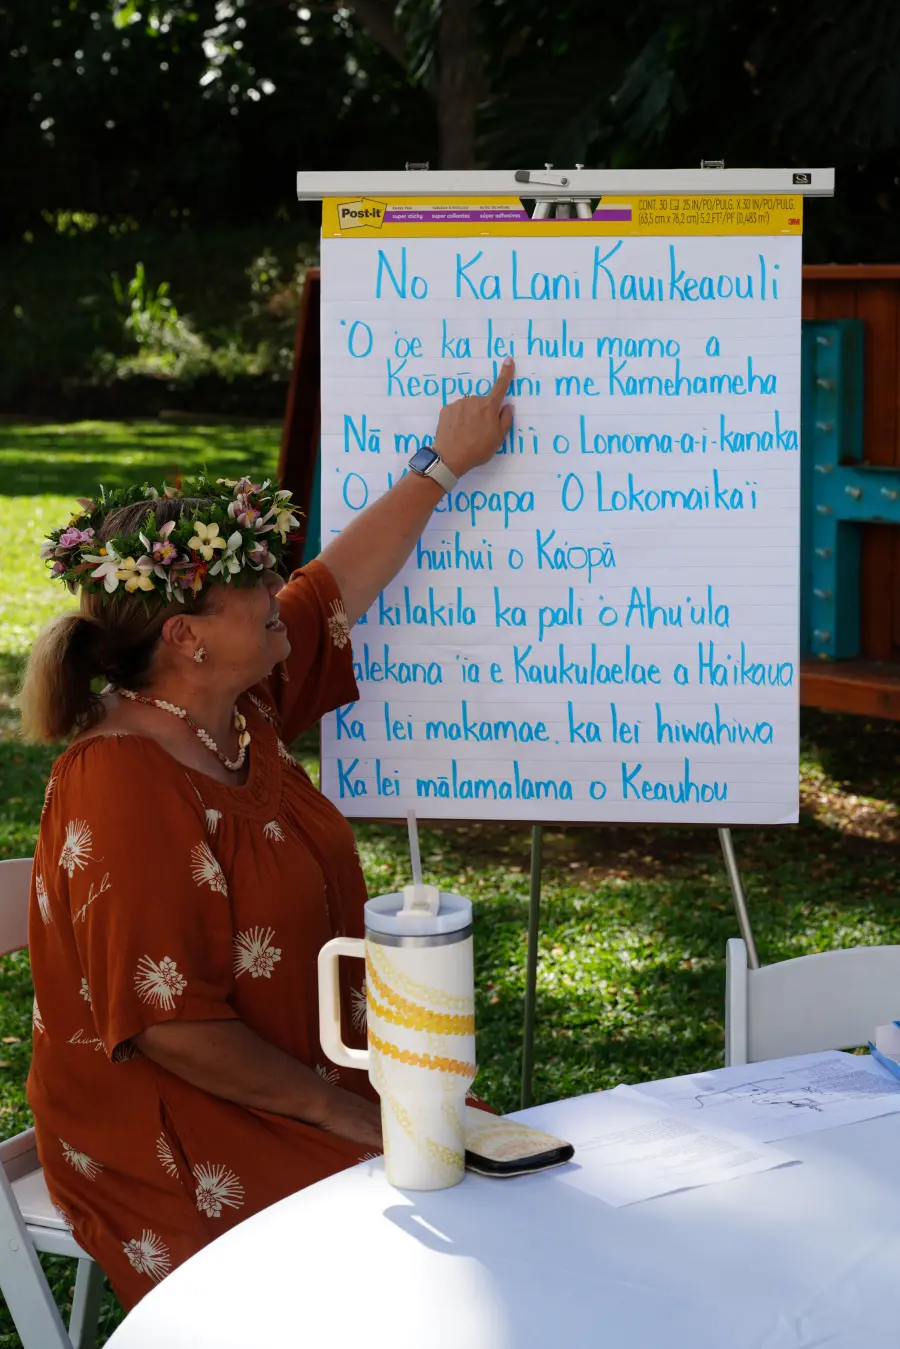 Post-it
super sticky
super collantes
súper adhesivas
CONT. 30 25 IN/PO/PULG. X 30 IN/PO/PULG.
(63,5 cm x 76,2 cm) 5.2 FT²/PI² (0,483 m²)
3M
No Ka Lani Kauikeaouli
ʻO ʻoe ka lei hulu mamo a
Keōpūolani me Kamehameha
Nā o Lonoma-a-i-kanaka
ʻO ʻO Lokomaikaʻi
huihuʻi o Kaʻopā
kilakila ka pali ʻo Ahuʻula
ʻia e Kaukulaelae a Haʻikaua
Ka lei makamae, ka lei hiwahiwa
Ka lei mālamalama o Keauhou